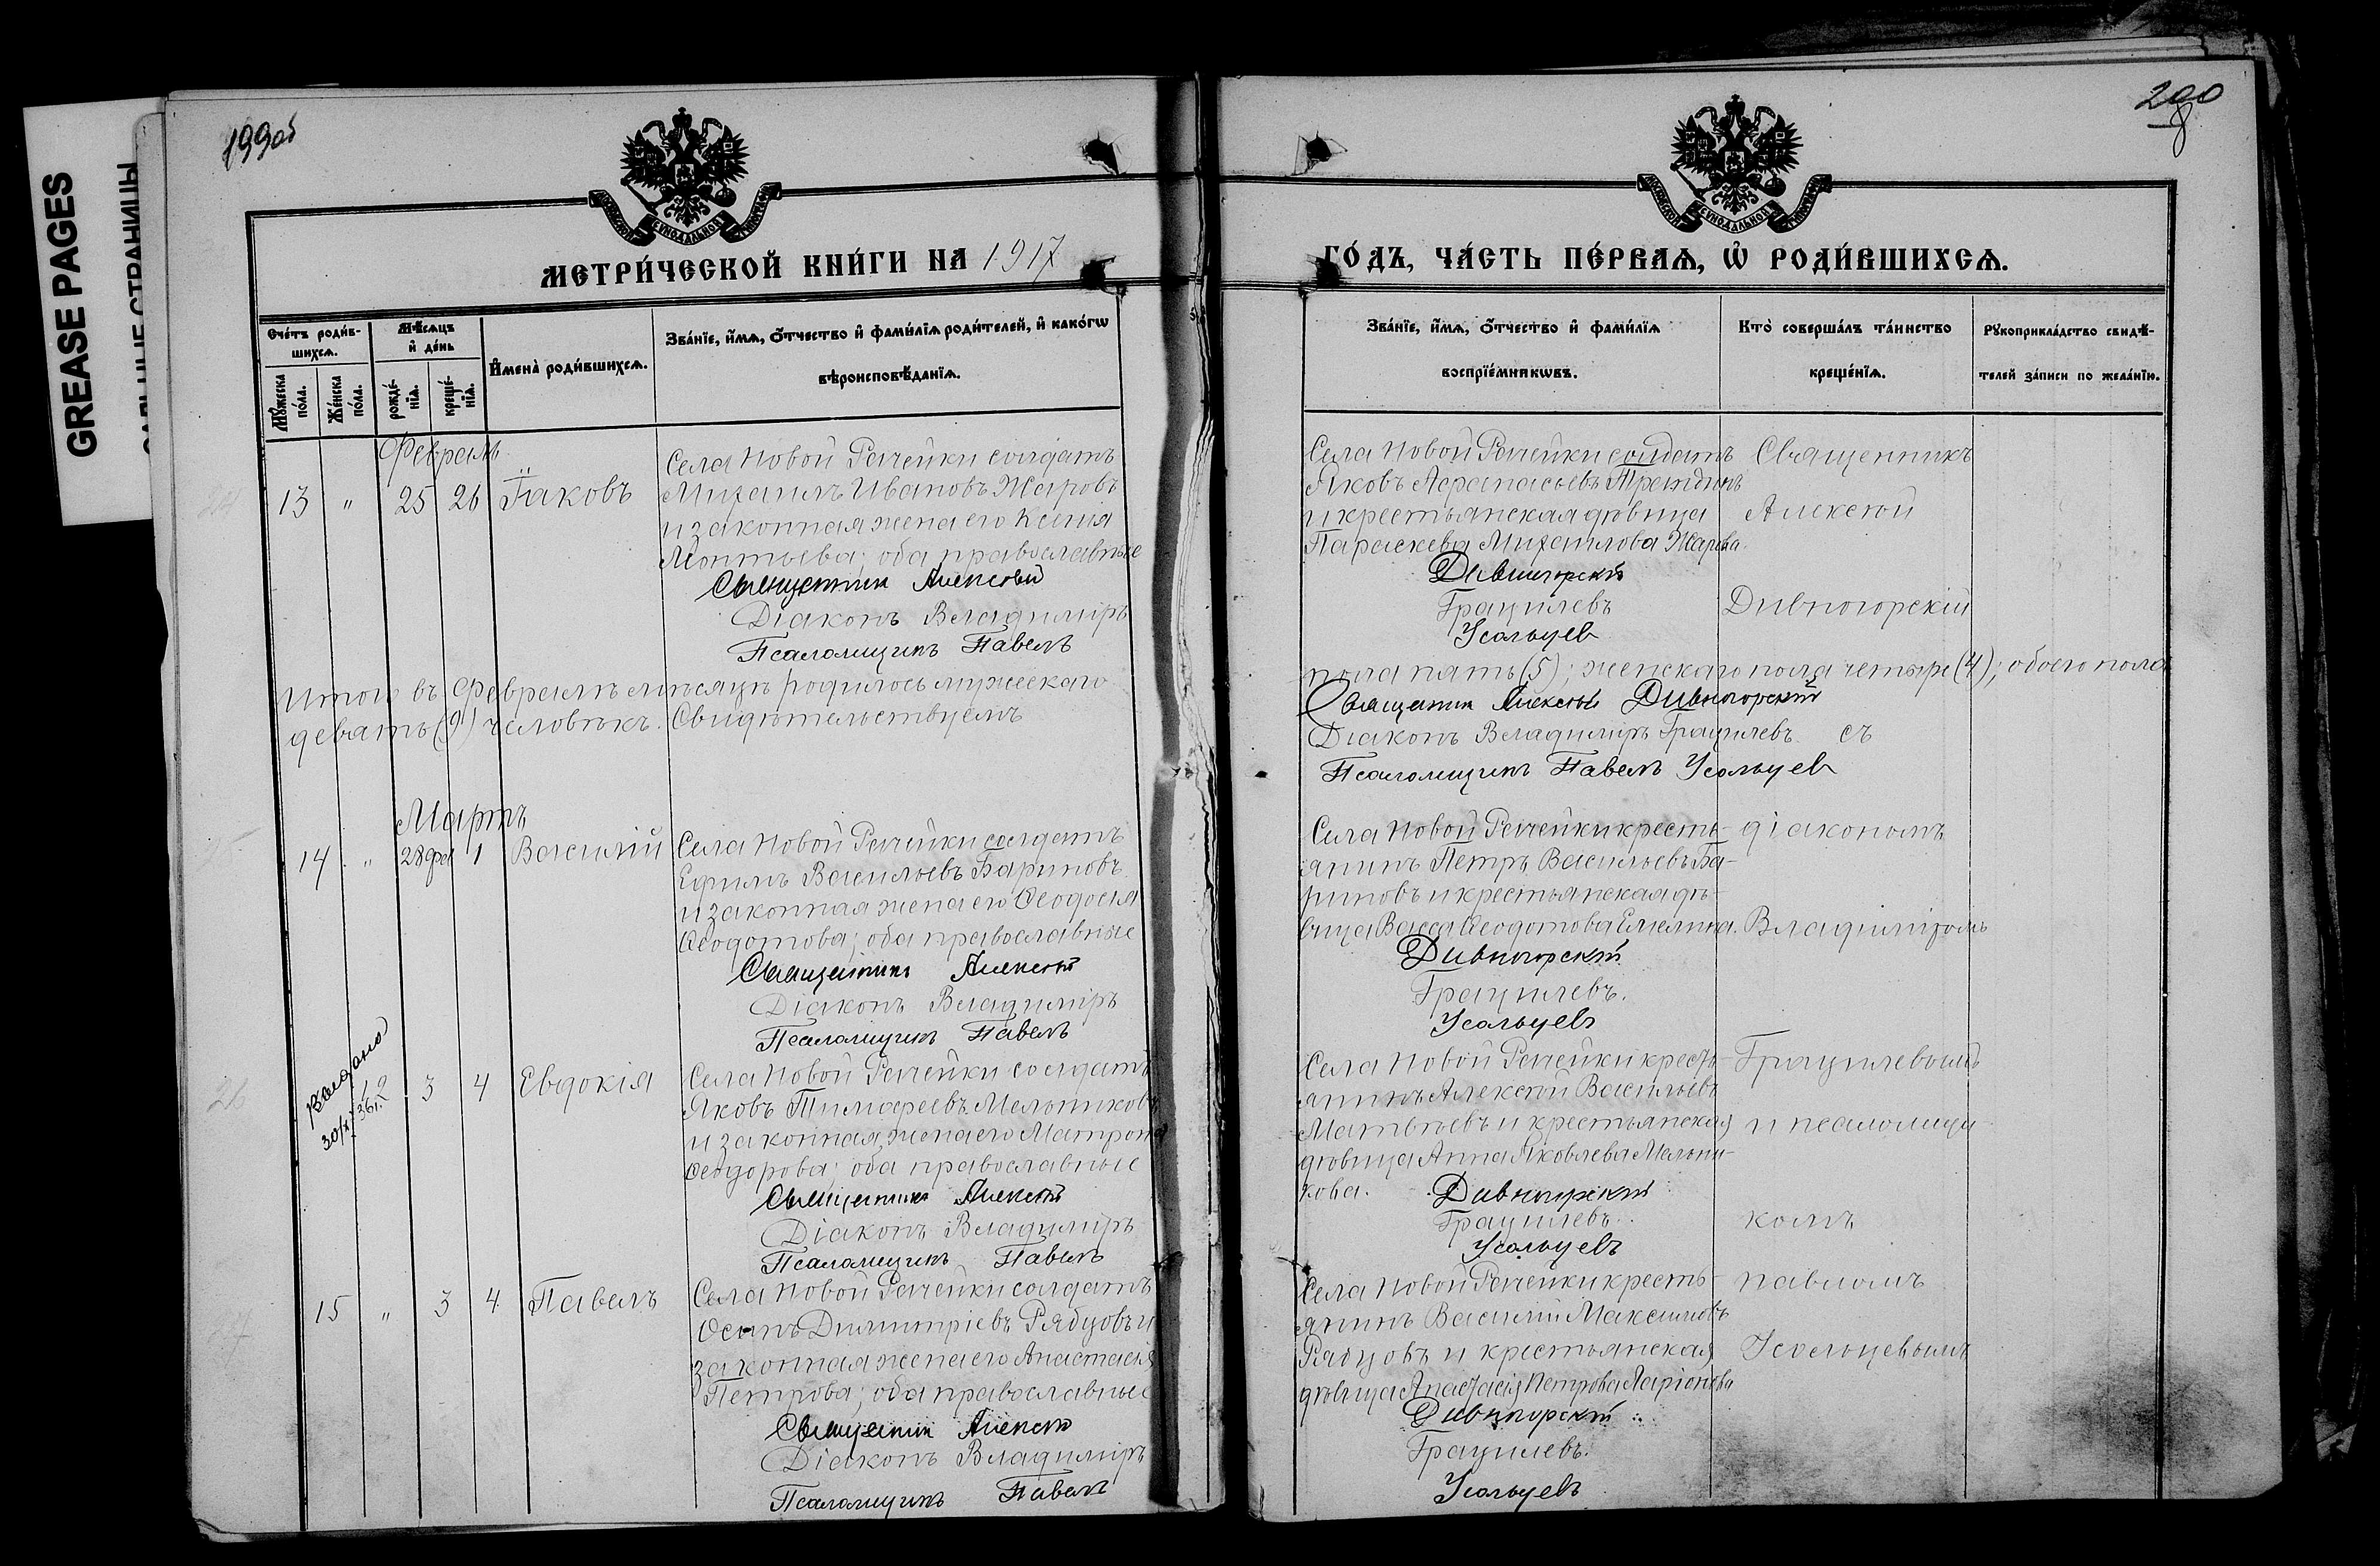 GREASE PAGES
199об
200
8
МЕТРИ́ЧЕСКОЙ КНИ́ГИ НА 1917
ГО́ДЪ, ЧА́СТЬ ПЕ́РВАѦ, Ѡ҆ РОДИ́ВШИХСѦ.
Сче́тъ роди́в-
шихсѧ.
Мѣ́сѧцъ
и҆ де́нь
И҆мена̀ роди́вшихсѧ.
Зва́нїе, и҆́мѧ, ѻ҆́тчество и҆ фами́лїѧ роди́телей, и҆ како́гѡ
вѣроисповѣ́данїѧ.
Мꙋ́жеска
по́ла.
Же́нска
по́ла.
рожде́-
нїѧ.
креще́-
нїѧ.
Зва́нїе, и҆́мѧ, ѻ҆́тчество и҆ фами́лїѧ
воспрїе́мникѡвъ.
Кто̀ соверша́лъ та́инство
креще́нїѧ.
Рꙋкоприкла́дство свидѣ́-
телей за́писи по жела́нїю.
Февраль
13 " 25 26 Їаковъ
Села Новой Рачейки солдатъ
Михаилъ Ивановъ Жаровъ
и законная жена его Ксенія
Леонтьева; оба православные
Священник Алексѣй
Діаконъ Владиміръ
Псаломщикъ Павелъ
Села Новой Рачейки солдатъ
Яковъ Афанасьевъ
и крестьянская дѣвица
Параскева Михаилова Жарова.
Дивногорскій
Грацилевъ
Усольцев
Священникъ
Алексѣй
Дивногорскій
Итого въ Февралѣ мѣсяцѣ родилось мужескаго
пола пять (5); женскаго пола четыре (4); обоего пола
девять (9) человѣкъ. Свидѣтельствуемъ
Священник Алексѣй Дивногорскій
Діаконъ Владиміръ Грацилевъ. съ
Псаломщикъ Павелъ Усольцев
Мартъ
14 " 28 фев 1 Василій
Села Новой Рачейки солдатъ
Ефимъ Васильевъ Бариновъ
и законная жена его Ѳеодосія
Ѳеодотова; оба православные
Священникъ Алексѣй
Діаконъ Владиміръ
Псаломщикъ Павелъ
Села Новой Рачейки кресть-
янинъ Петръ Васильевъ Ба-
риновъ и крестьянская дѣ-
вица Васса Ѳеодотова Емелина.
Дивногорскій
Грацилевъ.
Усольцевъ
діакономъ
Владиміромъ
26
Выдано
12 3 4 Евдокія
Села Новой Рачейки солдатъ
Яковъ Тимоѳеевъ Мельниковъ
и законная жена его Матрона
Ѳеодорова; оба православные
Священник Алексѣй
Діаконъ Владиміръ
Псаломщикъ Павелъ
Села Новой Рачейки кресть-
янинъ Алексѣй Васильевъ
Матвѣевъ и крестьянская
дѣвица Анна Яковлева Мельни-
кова. Дивногорскій
Грацилевъ.
Усольцевъ
Грацилевымъ
и псаломщи-
комъ
15 " 3 4 Павелъ
Села Новой Рачейки солдатъ
Осипъ Димитріевъ Рябцовъ и
законная жена его Анастасія
Петрова; оба православные
Священник Алексѣй
Діаконъ Владиміръ
Псаломщикъ Павелъ
Села Новой Рачейки кресть-
янинъ Василій Максимовъ
Рябцовъ и крестьянская
дѣвица Анастасія Петрова Ларіонова
Дивногорскій
Грацилевъ.
Усольцевъ
Павломъ
Усольцевымъ